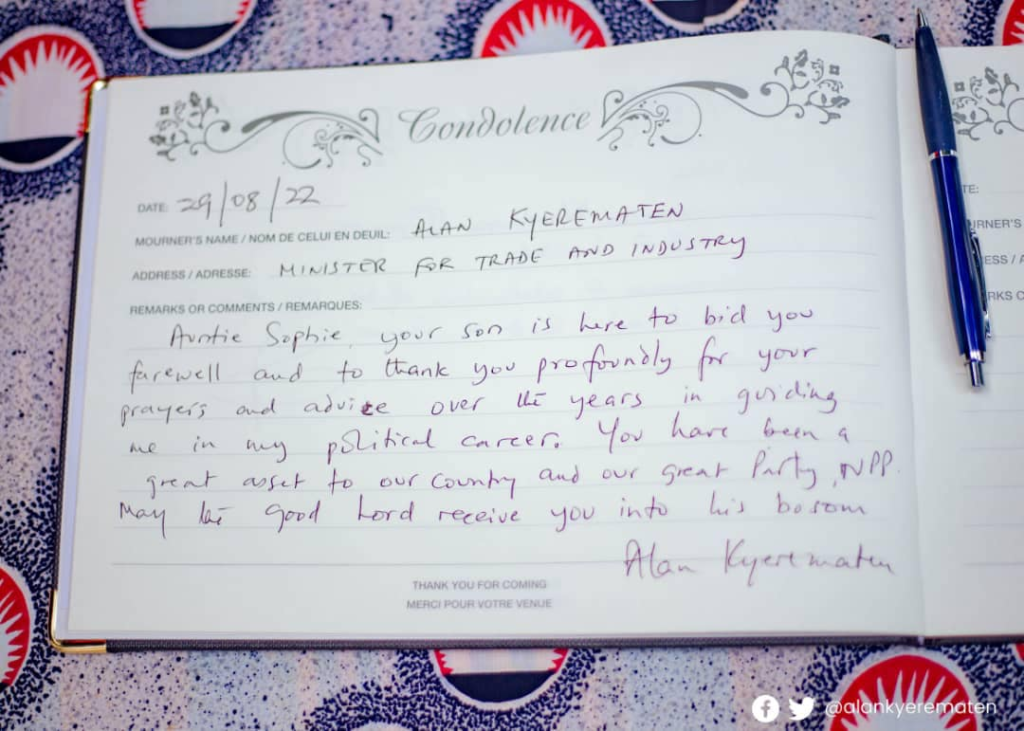 Condolence
DATE: 29/08/22
MOURNER'S NAME / NOM DE CELUI EN DEUIL: ALAN KYEREMATEN
ADDRESS / ADRESSE: MINISTER FOR TRADE AND INDUSTRY
REMARKS OR COMMENTS / REMARQUES:
Auntie Sophie, your son is here to bid you
farewell and to thank you profoundly for your
prayers and advice over the years in guiding
me in my political career. You have been a
great asset to our country and our great Party, NPP.
May the good Lord receive you into his bosom
Alan Kyerematen
THANK YOU FOR COMING
MERCI POUR VOTRE VENUE
@alankyerematen